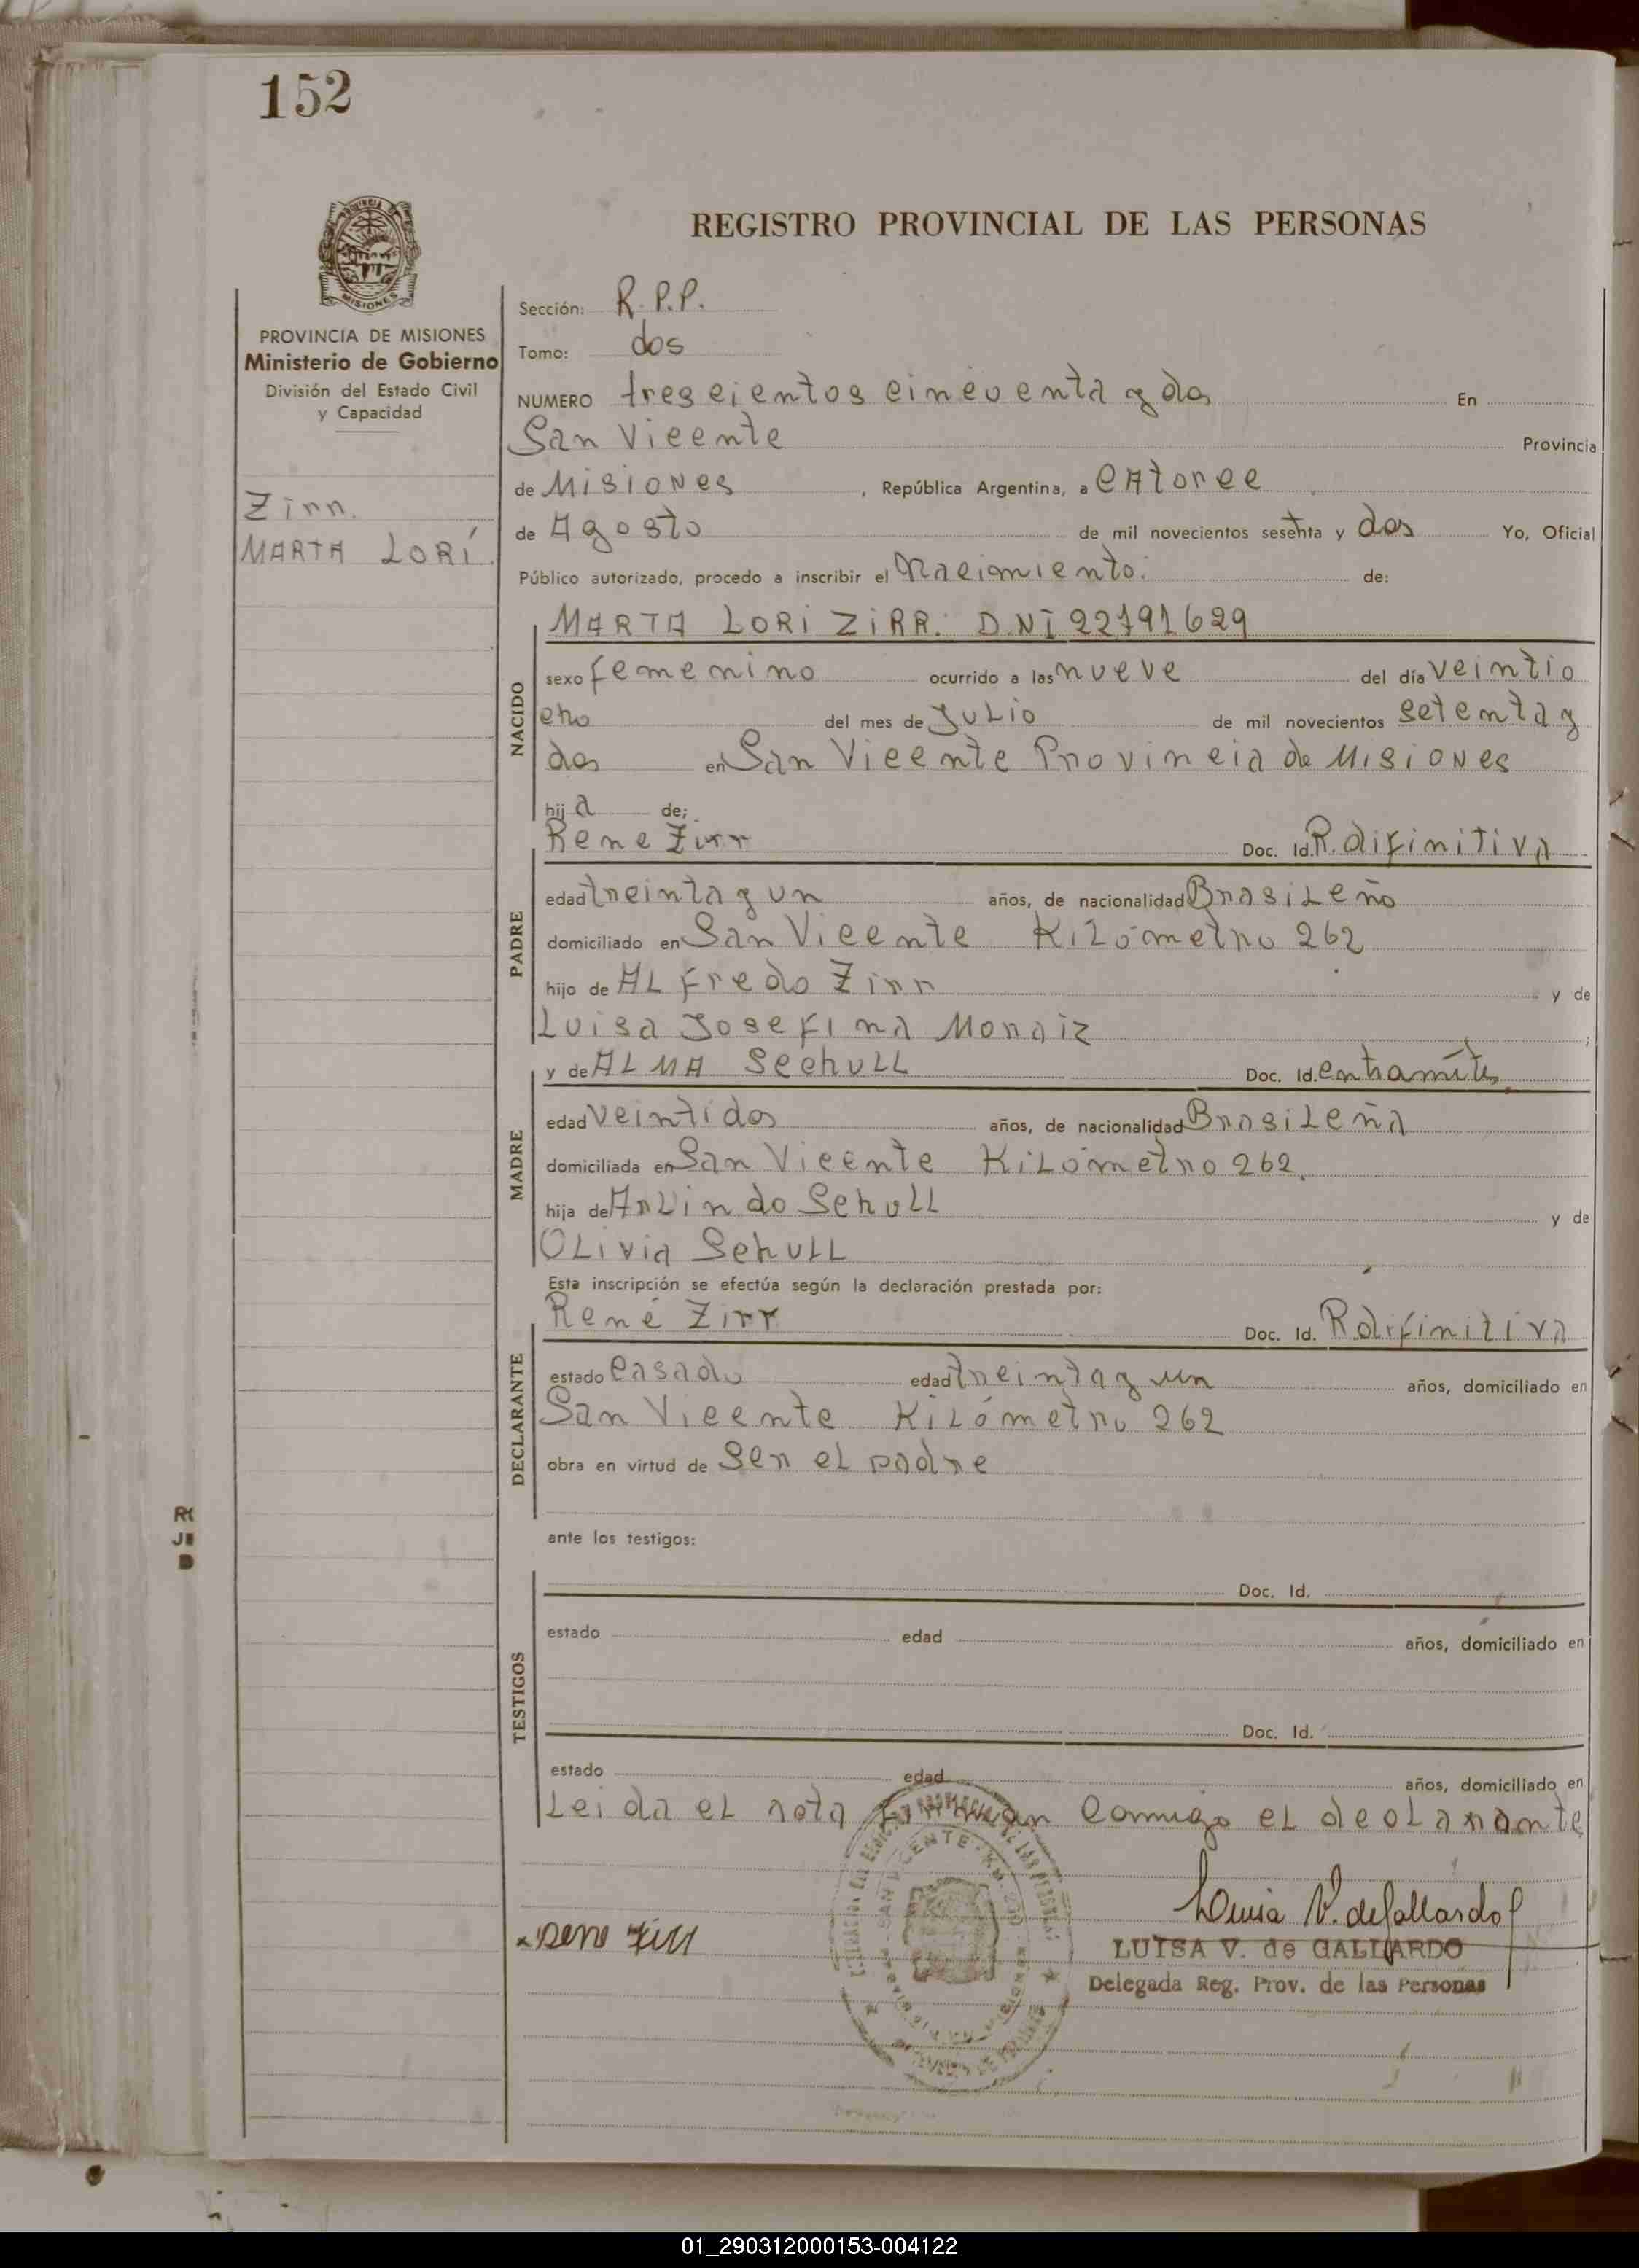 152
REGISTRO PROVINCIAL DE LAS PERSONAS
MISIONES
PROVINCIA DE MISIONES
Ministerio de Gobierno
División del Estado Civil
y Capacidad
Zirr.
MARTA LORÍ
Sección: R.P.P.
Tomo: dos
NUMERO trescientos cincuenta y dos En
San Vicente Provincia
de Misiones, República Argentina, a catorce
de Agosto de mil novecientos sesenta y dos Yo, Oficial
Público autorizado, procedo a inscribir el Nacimiento. de:
MARTA LORI ZIRR. DNI 22791629
NACIDO
sexo femenino ocurrido a las nueve del día veintio
cho del mes de Julio de mil novecientos setenta y
dos en San Vicente Provincia de Misiones
hij a de;
Rene Zirr Doc. Id. R. difinitiva
PADRE
edad treinta y un años, de nacionalidad Brasileño
domiciliado en San Vicente Kilómetro 262
hijo de Alfredo Zirr y de
Luisa Josefina Moraiz ;
y de ALMA Schull Doc. Id. entramite
MADRE
edad veintidos años, de nacionalidad Brasileña
domiciliada en San Vicente Kilómetro 262.
hija de Arlindo Schull y de
Olivia Schull
Esta inscripción se efectúa según la declaración prestada por:
René Zirr Doc. Id. R difinitiva
DECLARANTE
estado casado edad treinta y un años, domiciliado en
San Vicente Kilómetro 262
obra en virtud de ser el padre
ante los testigos:
TESTIGOS
Doc. Id.
estado edad años, domiciliado en
Doc. Id.
estado edad años, domiciliado en
Leida el acta firman conmigo el declarante
Luisa V. de Gallardo
LUISA V. de GALLARDO
Delegada Reg. Prov. de las Personas
SAN VICENTE
01_290312000153-004122